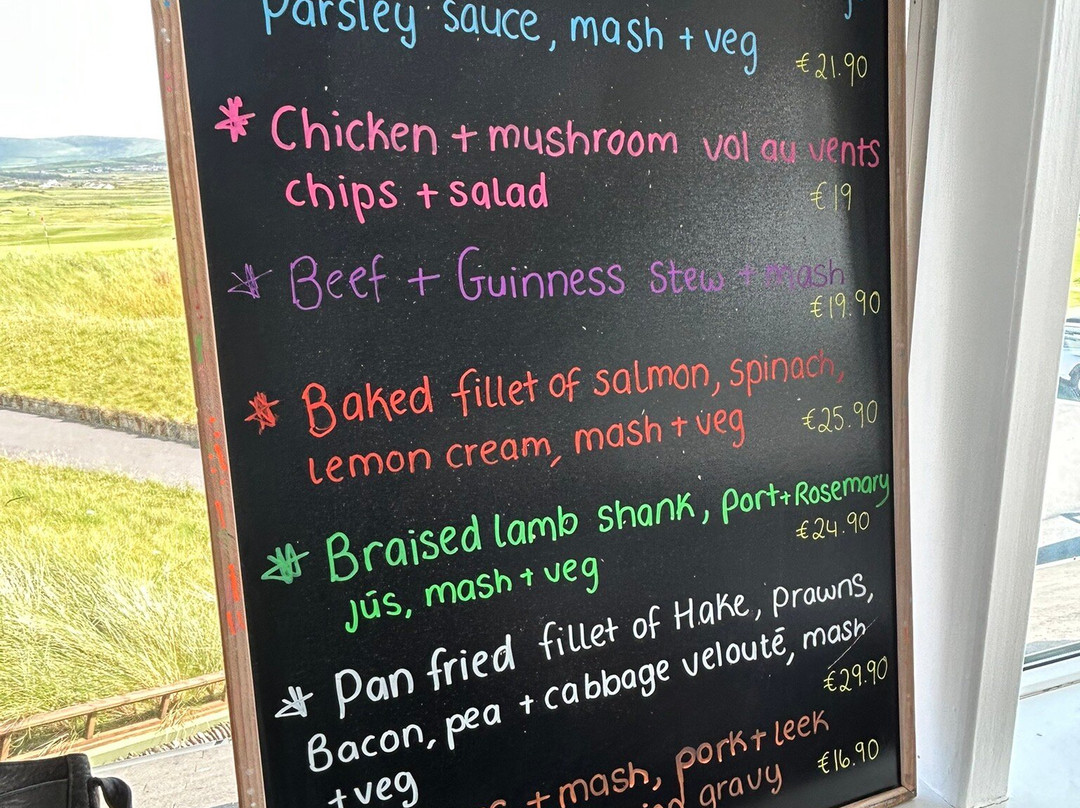 Parsley sauce, mash + veg
€21.90
* Chicken + mushroom vol au vents
chips + salad €19
* Beef + Guinness stew + mash
€19.90
* Baked fillet of salmon, spinach,
lemon cream, mash + veg €25.90
* Braised lamb shank, port + Rosemary
€24.90
jūs, mash + veg
* Pan fried fillet of Hake, prawns,
Bacon, pea + cabbage veloutē, mash
€29.90
+ veg
+ mash, pork + leek
gravy €16.90